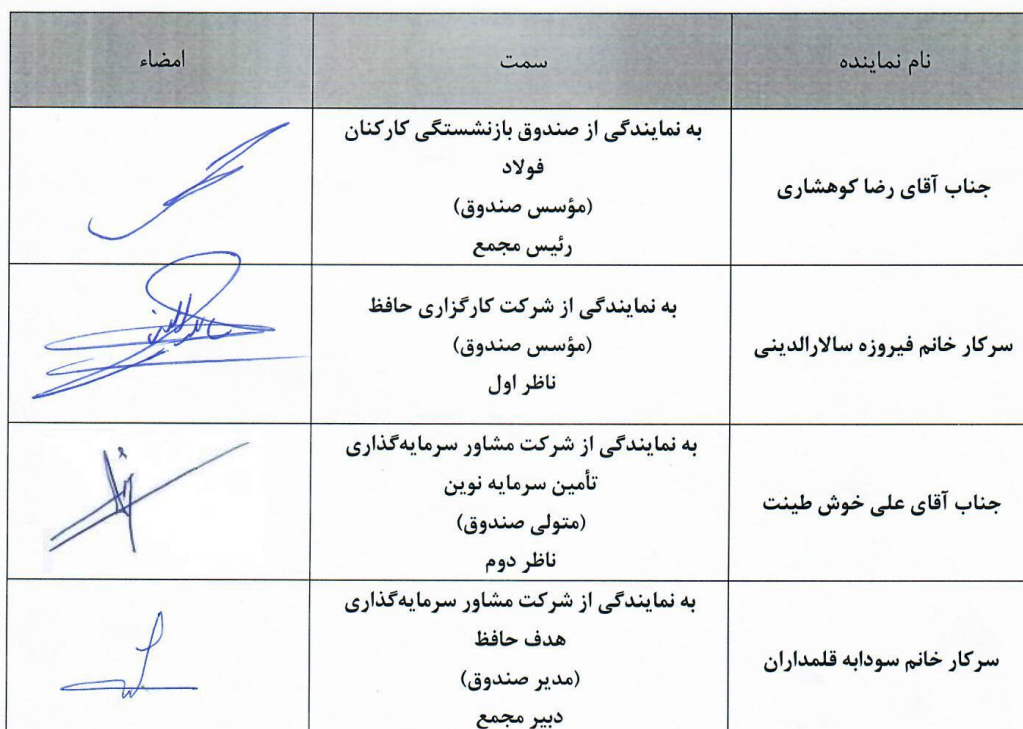 نام نماینده
سمت
امضاء
جناب آقای رضا کوهشاری
به نمایندگی از صندوق بازنشستگی کارکنان
فولاد
(مؤسس صندوق)
رئیس مجمع
سرکار خانم فیروزه سالارالدینی
به نمایندگی از شرکت کارگزاری حافظ
(مؤسس صندوق)
ناظر اول
جناب آقای علی خوش طینت
به نمایندگی از شرکت مشاور سرمایه‌گذاری
تأمین سرمایه نوین
(متولی صندوق)
ناظر دوم
سرکار خانم سودابه قلمداران
به نمایندگی از شرکت مشاور سرمایه‌گذاری
هدف حافظ
(مدیر صندوق)
دبیر مجمع